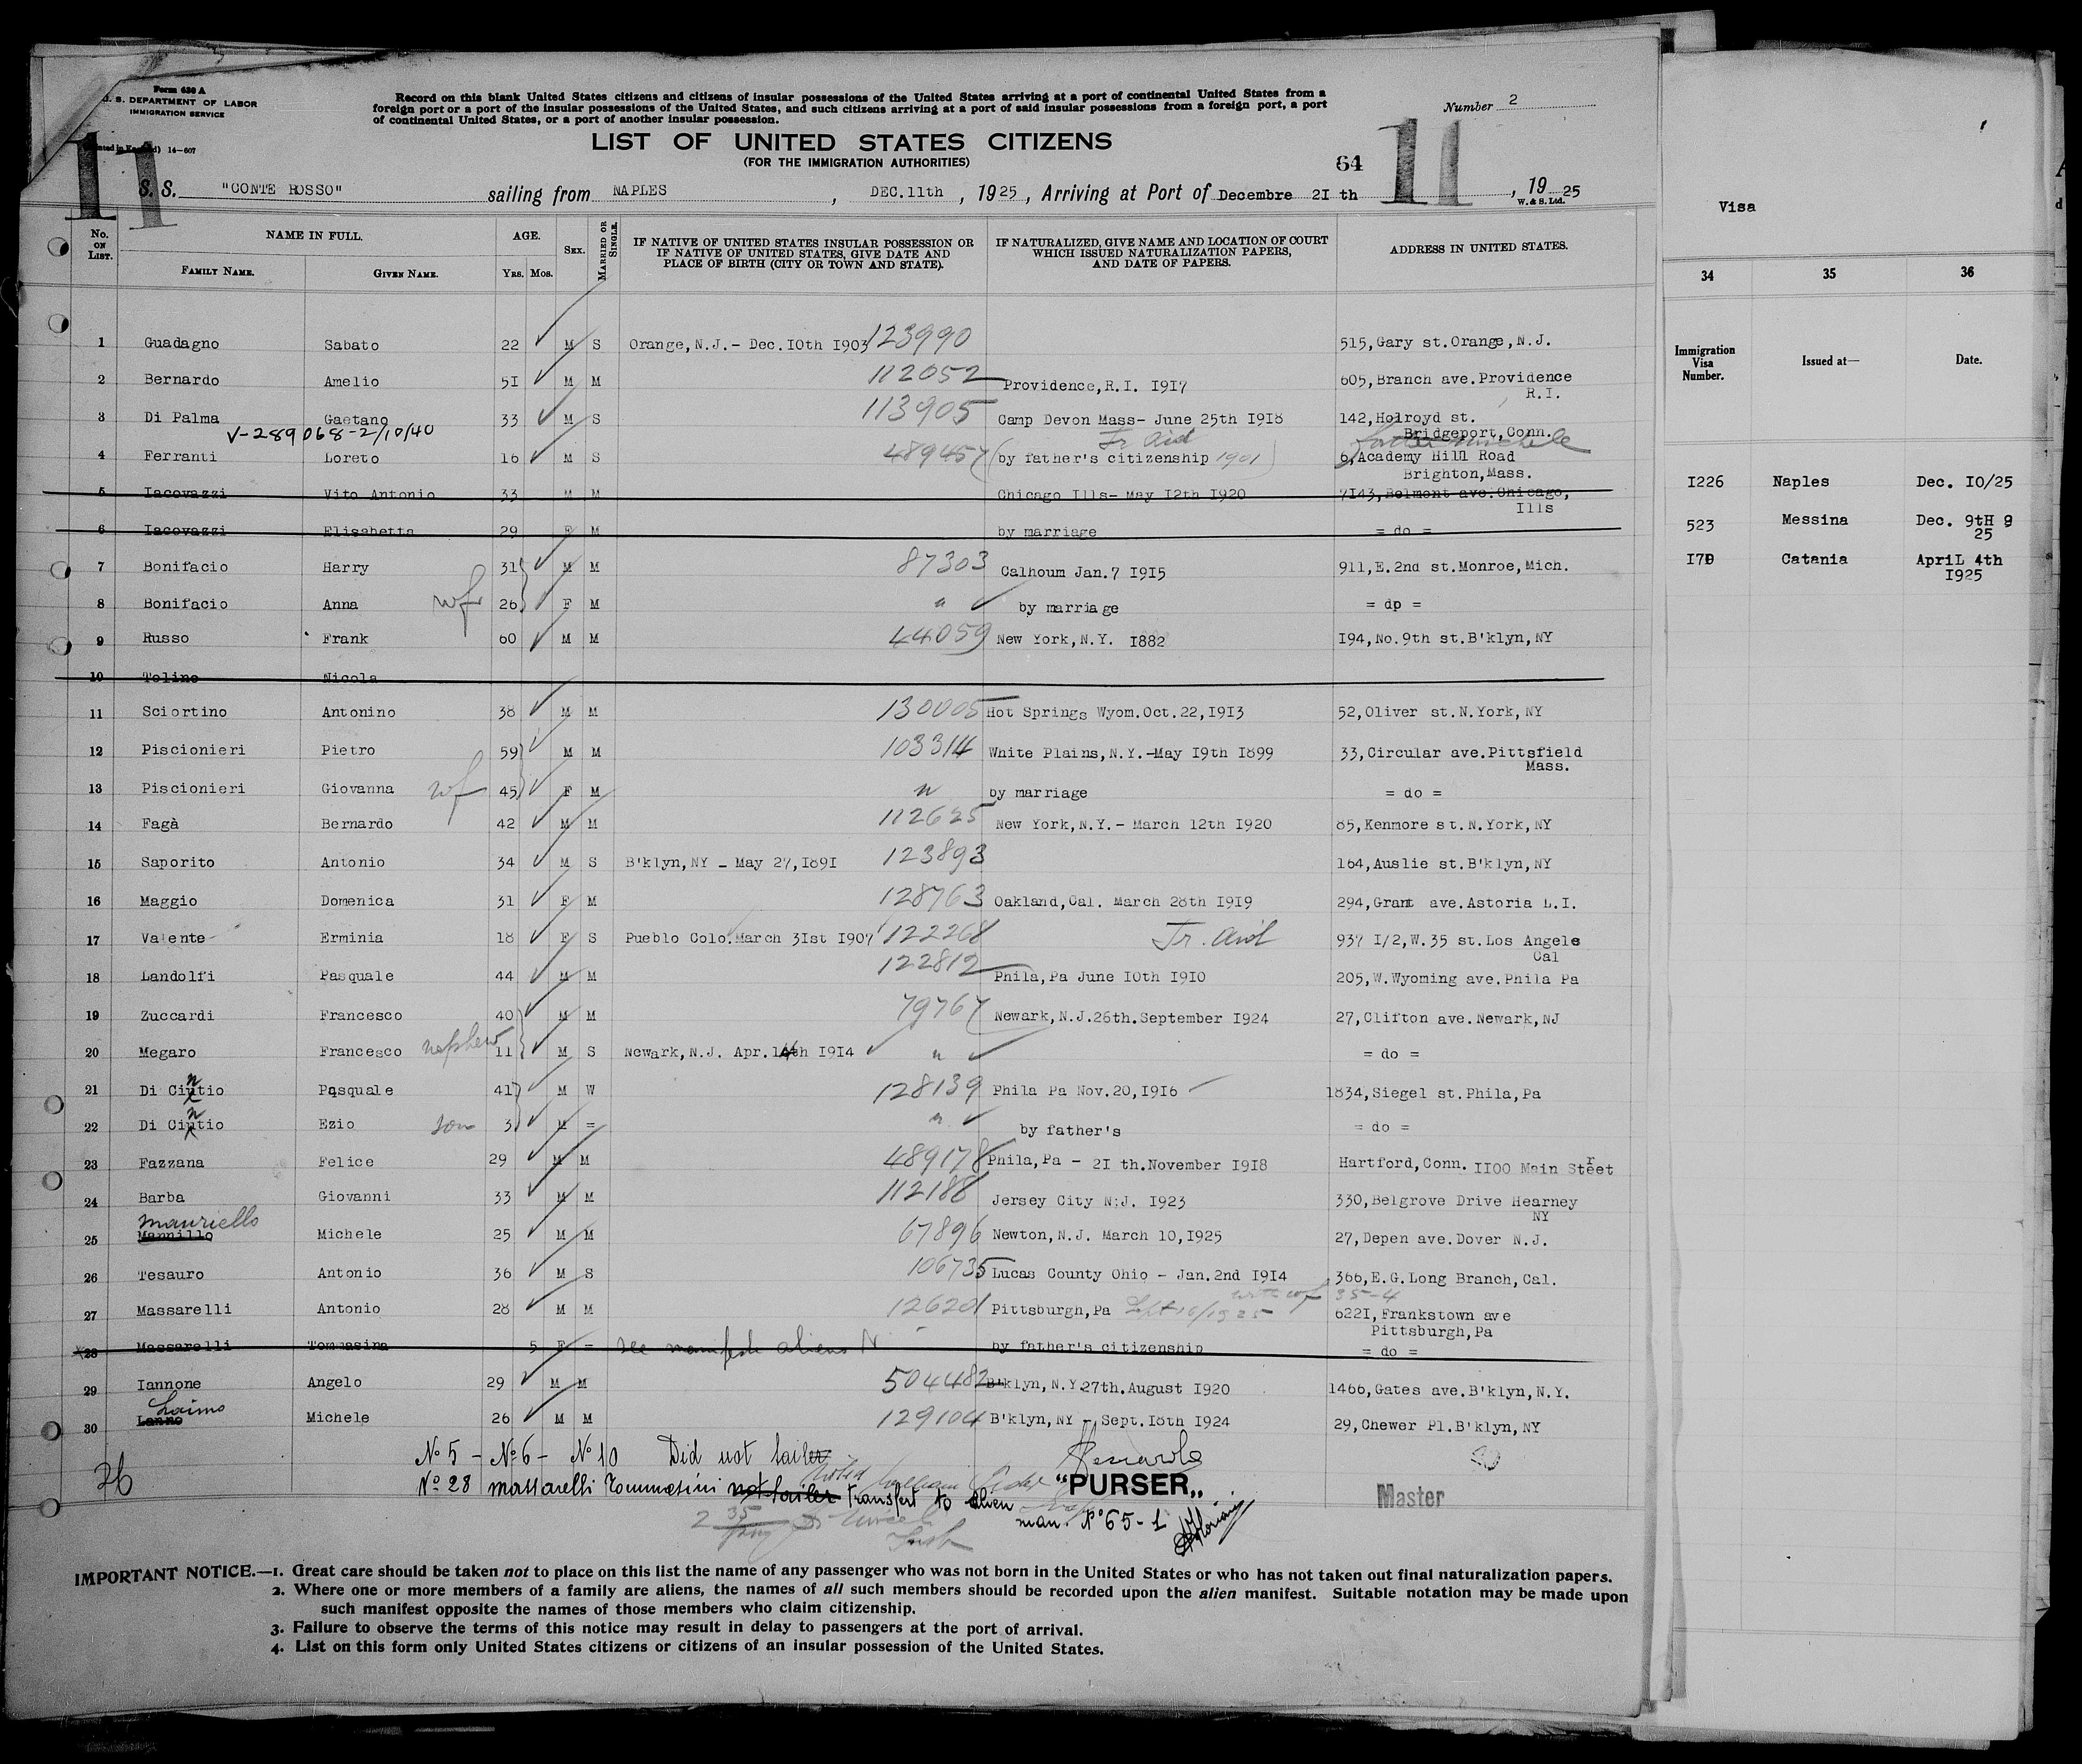 Form 630 A
U. S. DEPARTMENT OF LABOR
IMMIGRATION SERVICE
14—607
Record on this blank United States citizens and citizens of insular possessions of the United States arriving at a port of continental United States from a
foreign port or a port of the insular possessions of the United States, and such citizens arriving at a port of said insular possessions from a foreign port, a port
of continental United States, or a port of another insular possession.
Number 2
LIST OF UNITED STATES CITIZENS
(FOR THE IMMIGRATION AUTHORITIES)
11 64 11
S. S. "CONTE ROSSO" sailing from NAPLES, DEC.11th, 1925, Arriving at Port of Decembre 2I th, 1925
W. & S. Ltd.
No. ON LIST. NAME IN FULL. FAMILY NAME. GIVEN NAME. AGE. YRS. MOS. SEX. MARRIED OR SINGLE. IF NATIVE OF UNITED STATES INSULAR POSSESSION OR IF NATIVE OF UNITED STATES, GIVE DATE AND PLACE OF BIRTH (CITY OR TOWN AND STATE). IF NATURALIZED, GIVE NAME AND LOCATION OF COURT WHICH ISSUED NATURALIZATION PAPERS, AND DATE OF PAPERS. ADDRESS IN UNITED STATES.
1 Guadagno Sabato 22 M S Orange,N.J.- Dec.I0th I903 123990 515,Gary st.Orange,N.J.
2 Bernardo Amelio 5I M M 112052 Providence,R.I. I9I7 605,Branch ave.Providence
R.I.
3 Di Palma Gaetano 33 M S 113905 Camp Devon Mass- June 25th I9I8 142,Holroyd st.
V-289068-2/10/40 Tr Aid Bridgeport,Conn.
4 Ferranti Loreto I6 M S 489457 (by father's citizenship 1901) 6,Academy Hill Road
Brighton,Mass.
5 Iacovazzi Vito Antonio 33 M M Chicago Ills- May I2th I920 7I43,Belmont ave.Chicago,
Ills
6 Iacovazzi Elisabetta 29 F M by marriage = do =
7 Bonifacio Harry 31 M M 87303 Calhoum Jan.7 I9I5 911,E.2nd st.Monroe,Mich.
8 Bonifacio Anna wf 26 F M " by marriage = dp =
9 Russo Frank 60 M M 44059 New York,N.Y. I882 I94,No.9th st.B'klyn,NY
10 Tolino Nicola
11 Sciortino Antonino 38 M M 130005 Hot Springs Wyom.Oct.22,I9I3 52,Oliver st.N.York,NY
12 Piscionieri Pietro 59 M M 103314 White Plains,N.Y.-May I9th I899 33,Circular ave.Pittsfield
Mass.
13 Piscionieri Giovanna wf 45 F M " by marriage = do =
14 Fagà Bernardo 42 M M 112625 New York,N.Y.- March I2th I920 85,Kenmore st.N.York,NY
15 Saporito Antonio 34 M S B'klyn,NY - May 27,I89I 123893 164,Auslie st.B'klyn,NY
16 Maggio Domenica 31 F M 128763 Oakland,Cal. March 28th I9I9 294,Grant ave.Astoria L.I.
17 Valente Erminia 18 F S Pueblo Colo.March 3Ist I907 122268 Tr. Aid 937 I/2,W.35 st.Los Angele
Cal
18 Landolfi Pasquale 44 M M 122812 Phila,Pa June I0th I9I0 205,W.Wyoming ave.Phila Pa
19 Zuccardi Francesco 40 M M 79767 Newark,N.J.26th.September I924 27,Clifton ave.Newark,NJ
20 Megaro Francesco nephew 11 M S Newark,N.J. Apr.14th I9I4 " = do =
21 Di Cintio Pasquale 41 M W 128139 Phila Pa Nov.20,I9I6 1834,Siegel st.Phila,Pa
22 Di Cintio Ezio son 3 M = " by father's = do =
23 Fazzana Felice 29 M M 489178 Phila,Pa - 2I th.November I9I8 Hartford,Conn. II00 Main Street
24 Barba Giovanni 33 M M 112188 Jersey City N.J. I923 330,Belgrove Drive Hearney
NY
Mauriello
25 Mannillo Michele 25 M M 67896 Newton,N.J. March I0,I925 27,Depen ave.Dover N.J.
26 Tesauro Antonio 36 M S 106735 Lucas County Ohio - Jan.2nd I9I4 366,E.G.Long Branch,Cal.
with wf 35-4
27 Massarelli Antonio 28 M M 126201 Pittsburgh,Pa Sept 16/1925 622I,Frankstown ave
Pittsburgh,Pa
28 Massarelli Tommasina 5 F = see manifest aliens N by father's citizenship = do =
29 Iannone Angelo 29 M M 504482 B'klyn,N.Y.27th.August I920 1466,Gates ave.B'klyn,N.Y.
Laimo
30 Lanno Michele 26 M M 129104 B'klyn,NY - Sept.I8th I924 29,Chewer Pl.B'klyn,NY
26
No 5 - No 6 - No 10 Did not sailer
No 28 Massarelli Tommasini not sailer transfert to alien
man. No 65-1
"PURSER„
Master
IMPORTANT NOTICE.—1. Great care should be taken not to place on this list the name of any passenger who was not born in the United States or who has not taken out final naturalization papers.
2. Where one or more members of a family are aliens, the names of all such members should be recorded upon the alien manifest. Suitable notation may be made upon
such manifest opposite the names of those members who claim citizenship.
3. Failure to observe the terms of this notice may result in delay to passengers at the port of arrival.
4. List on this form only United States citizens or citizens of an insular possession of the United States.
Visa
34 35 36
Immigration Visa Number. Issued at— Date.
I226 Naples Dec. I0/25
523 Messina Dec. 9tH 9
25
I79 Catania ApriL 4th
I925